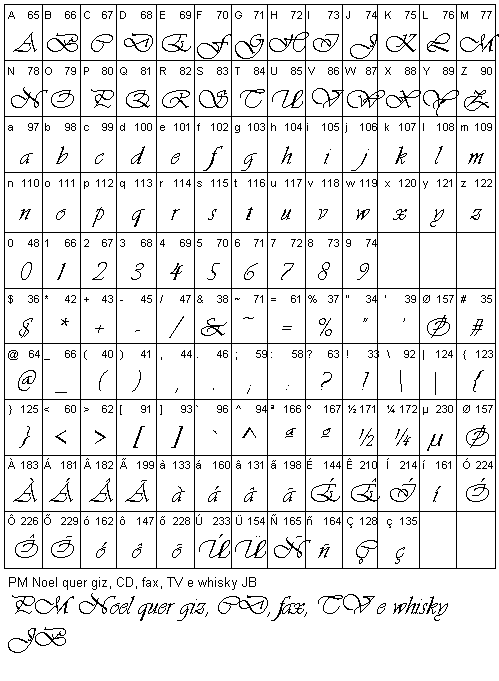 A 65 B 66 C 67 D 68 E 69 F 70 G 71 H 72 I 73 J 74 K 75 L 76 M 77
A B C D E F G H I J K L M
N 78 O 79 P 80 Q 81 R 82 S 83 T 84 U 85 V 86 W 87 X 88 Y 89 Z 90
N O P Q R S T U V W X Y Z
a 97 b 98 c 99 d 100 e 101 f 102 g 103 h 104 i 105 j 106 k 107 l 108 m 109
a b c d e f g h i j k l m
n 110 o 111 p 112 q 113 r 114 s 115 t 116 u 117 v 118 w 119 x 120 y 121 z 122
n o p q r s t u v w x y z
0 48 1 66 2 67 3 68 4 69 5 70 6 71 7 72 8 73 9 74
0 1 2 3 4 5 6 7 8 9
$ 36 * 42 + 43 - 45 / 47 & 38 ~ 71 = 61 % 37 " 34 ' 39 Ø 157 # 35
$ * + - / & ~ = % " ' Ø #
@ 64 _ 66 ( 40 ) 41 , 44 . 46 ; 59 : 58 ? 63 ! 33 \ 92 | 124 { 123
@ _ ( ) , . ; : ? ! \ | {
} 125 < 60 > 62 [ 91 ] 93 ` 96 ^ 94 ª 166 º 167 ½ 171 ¼ 172 µ 230 Ø 157
} < > [ ] ` ^ ª º ½ ¼ µ Ø
À 183 Á 181 Â 182 Ã 199 à 133 á 160 â 131 ã 198 É 144 Ê 210 Í 214 í 161 Ó 224
À Á Â Ã à á â ã É Ê Í í Ó
Ô 226 Õ 229 ó 162 ô 147 õ 228 Ú 233 Ü 154 Ñ 165 ñ 164 Ç 128 ç 135
Ô Õ ó ô õ Ú Ü Ñ ñ Ç ç
PM Noel quer giz, CD, fax, TV e whisky JB
PM Noel quer giz, CD, fax, TV e whisky
JB